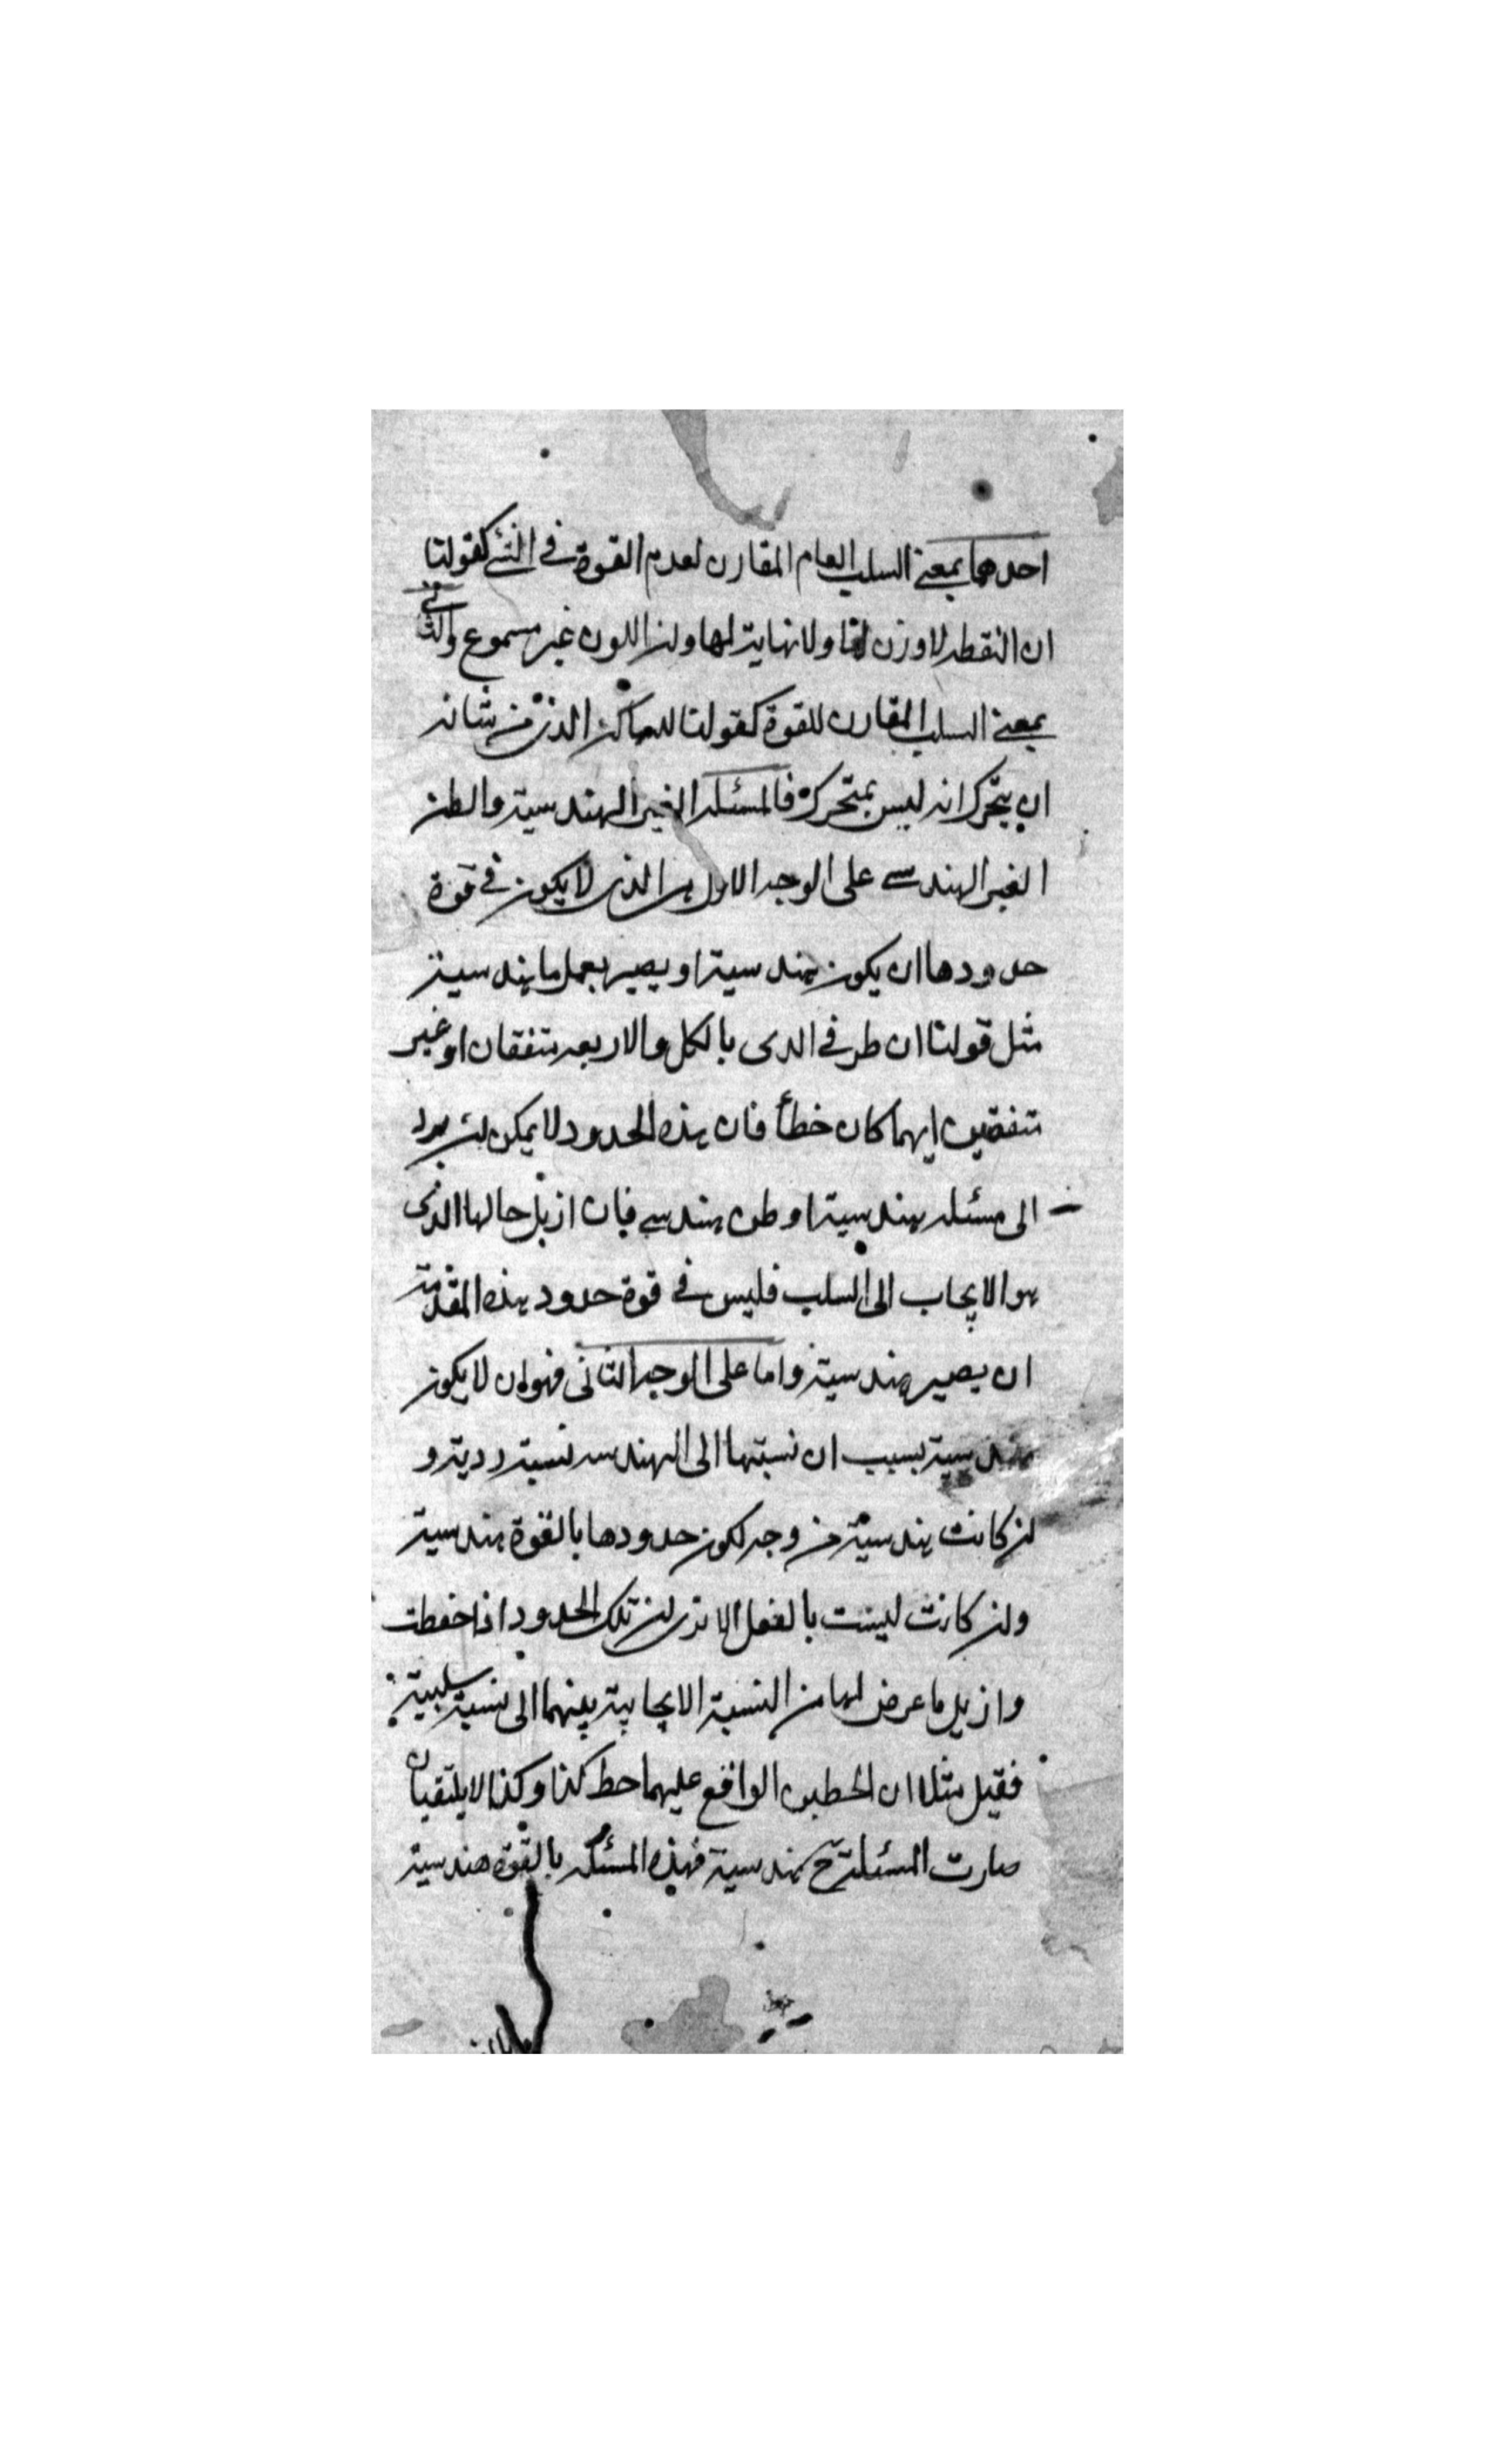 احدهما بمعنى السلب العام المقارن لعدم القوة في الشئ كقولنا
ان النقطه لا وزن لها ولا نهاية لها وان اللون غير مسموع والثاني
بمعنى السلب المقارن للقوة كقولنا للساكن الذى من شانه
ان يتحرك انه ليس بمتحرك فالمسئله الغير الهندسية والظن
الغير الهندسى على الوجه الاول هى الذى لا يكون في قوة
حدودها ان يكون هندسية او يصير بعمل ما هندسية
مثل قولنا ان طرفى الذى بالكل والاربعه متفقان او غير
متفقين ايهما كان خطأ فان هذه الحدود لا يمكن ان يرد
الى مسئله هندسية او ظن هندسى فان ازيل حالها الذى
هو الايجاب الى السلب فليس في قوة حدود هذه المقدمة
ان يصير هندسية واما على الوجه الثانى فهو ان لا يكون
هندسية بسبب ان نسبتها الى الهندسه نسبة ردية و
ان كانت هندسية من وجه لكون حدودها بالقوة هندسية
وان كانت ليست بالفعل الا ترى ان تلك الحدود اذا حفظت
وازيل ما عرض لها من النسبة الايجابية بينهما الى نسبة سلبية
فقيل مثلا ان الخطين الواقع عليهما خط كذا وكذا لا يلتقيان
صارت المسئلة ح هندسية فهذه المسئله بالقوة هندسية